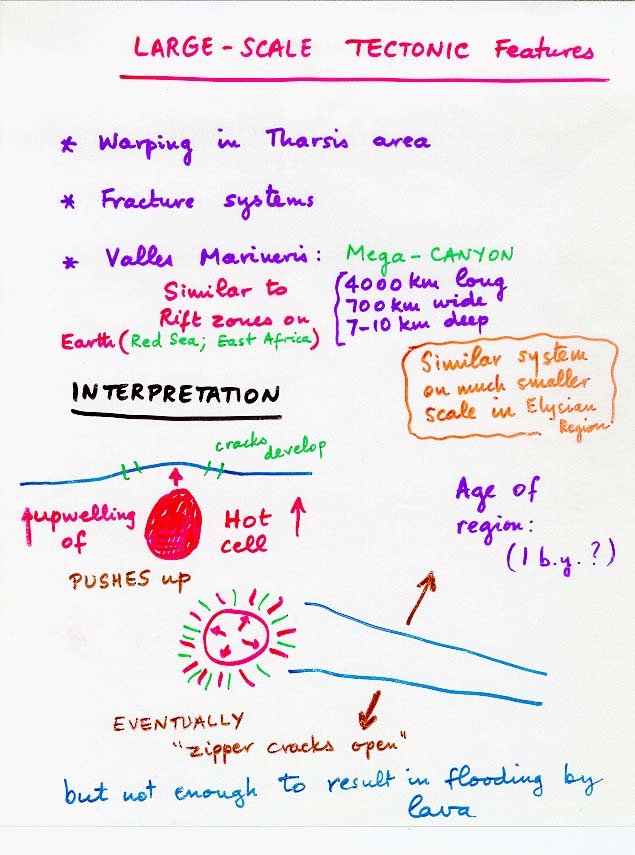 LARGE-SCALE TECTONIC Features
* Warping in Tharsis area
* Fracture systems
* Valles Marineris: Mega-CANYON
Similar to
Rift zones on
Earth (Red Sea; East Africa)
4000 km long
700 km wide
7-10 km deep
Similar system
on much smaller
scale in Elysian
Region
INTERPRETATION
cracks develop
upwelling
of
Hot
cell
PUSHES up
Age of
region:
(1 b.y.?)
EVENTUALLY
"zipper cracks open"
but not enough to result in flooding by
lava